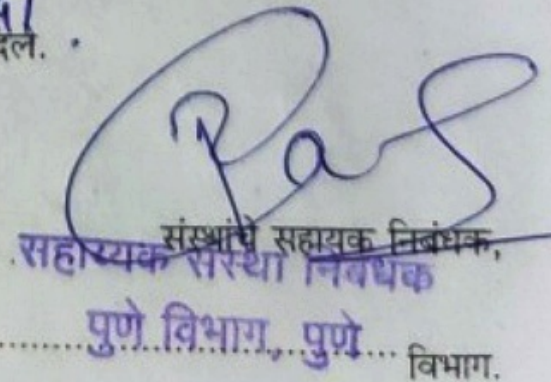 दिले.
संस्थांचे सहायक निबंधक,
सहाय्यक संस्था निबंधक
पुणे विभाग, पुणे
विभाग.